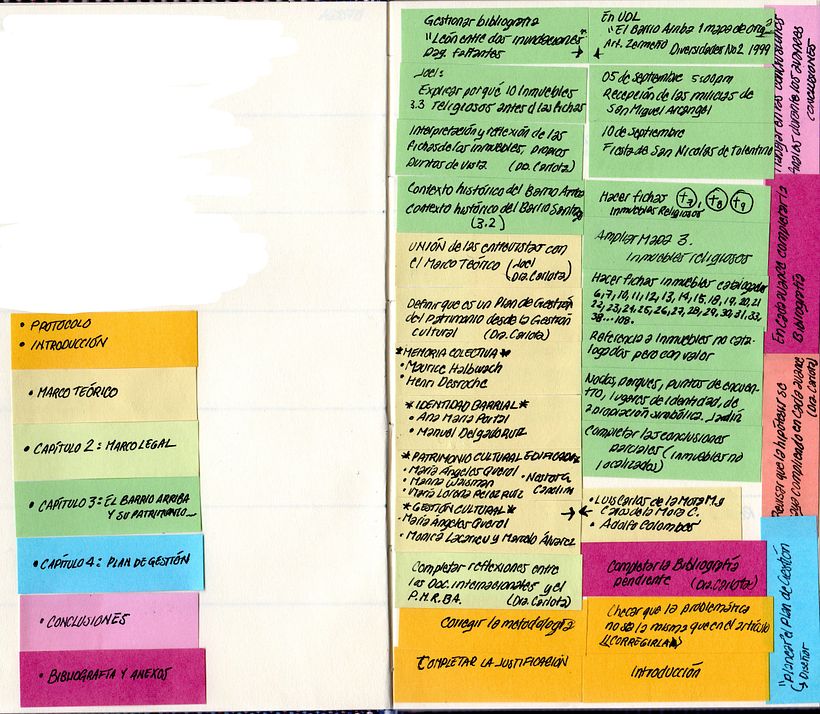 • PROTOCOLO
• INTRODUCCIÓN
• MARCO TEÓRICO
• CAPÍTULO 2: MARCO LEGAL
• CAPÍTULO 3: EL BARRIO ARRIBA
Y SU PATRIMONIO...
• CAPÍTULO 4: PLAN DE GESTIÓN
• CONCLUSIONES
• BIBLIOGRAFÍA Y ANEXOS
Gestionar bibliografía
"León entre dos inundaciones"
Pag. faltantes →
Joel:
Explicar porqué 10 Inmuebles
3.3 religiosos antes d las fichas
Interpretación y reflexión de las
fichas de los inmuebles, propios
puntos de vista (Dra. Carlota)
Contexto histórico del Barrio Arriba
contexto histórico del Barrio Santiago
(3.2)
UNIÓN de las entrevistas con
el Marco Teórico (Joel
(Dra. Carlota)
Definir que es un Plan de Gestión
del Patrimonio desde la Gestión
cultural (Dra. Carlota)
*MEMORIA COLECTIVA*
• Maurice Halbwach
• Henri Desroche
*IDENTIDAD BARRIAL*
• Ana María Portal
• Manuel Delgado Ruiz
*PATRIMONIO CULTURAL EDIFICADO*
• María Ángeles Querol
• Marina Waisman • Nestor G.
• María Lorena Perez Ruiz Canclini
*GESTIÓN CULTURAL*
• María Ángeles Querol
• Monica Lacarrieu y Marcelo Álvarez
Completar reflexiones entre
las Doc. internacionales y el
P.M.R.BA. (Dra. Carlota)
Corregir la metodología
COMPLETAR LA JUSTIFICACIÓN
En UDL
"El Barrio Arriba 1 mapa de
Art. Zermeño Diversidades No2 1999
05 de septiembre 5:00pm
Recepción de las milicias de
San Miguel Arcangel
10 de septiembre
Fiesta de San Nicolas de Tolentino
Hacer fichas †7, †8 †9
Inmuebles Religiosos
Ampliar Mapa 3.
Inmuebles religiosos
Hacer fichas inmuebles catalogados
6,7,10,11,12,13,14,15,18,19,20,21
22,23,24,25,26,27,28,29,30,31,33,
38...108.
Referencia a Inmuebles no cata-
logados pero con valor
Nodos, parques, puntos de encuen-
tro, lugares de identidad, de
apropiación simbólica. Jardín
Completar las conclusiones
parciales (inmuebles no
localizados)
→← • Luis Carlos de la Mora M. y
Carlos de la Mora C.
• Adolfo Colombres
Completar la Bibliografía
pendiente (Dra. Carlota)
Checar que la problemática
no sea la misma que en el artículo
¡¡CORREGIRLA
Introducción
Trabajar en las
finales durante los avances
(CONCLUSIONES
En cada avance completar la
Bibliografía
Revisar que la hipótesis se
vaya cumpliendo en cada avance
(Dra. Carlota)
"Planear el Plan de Gestión
↳ Diseñar